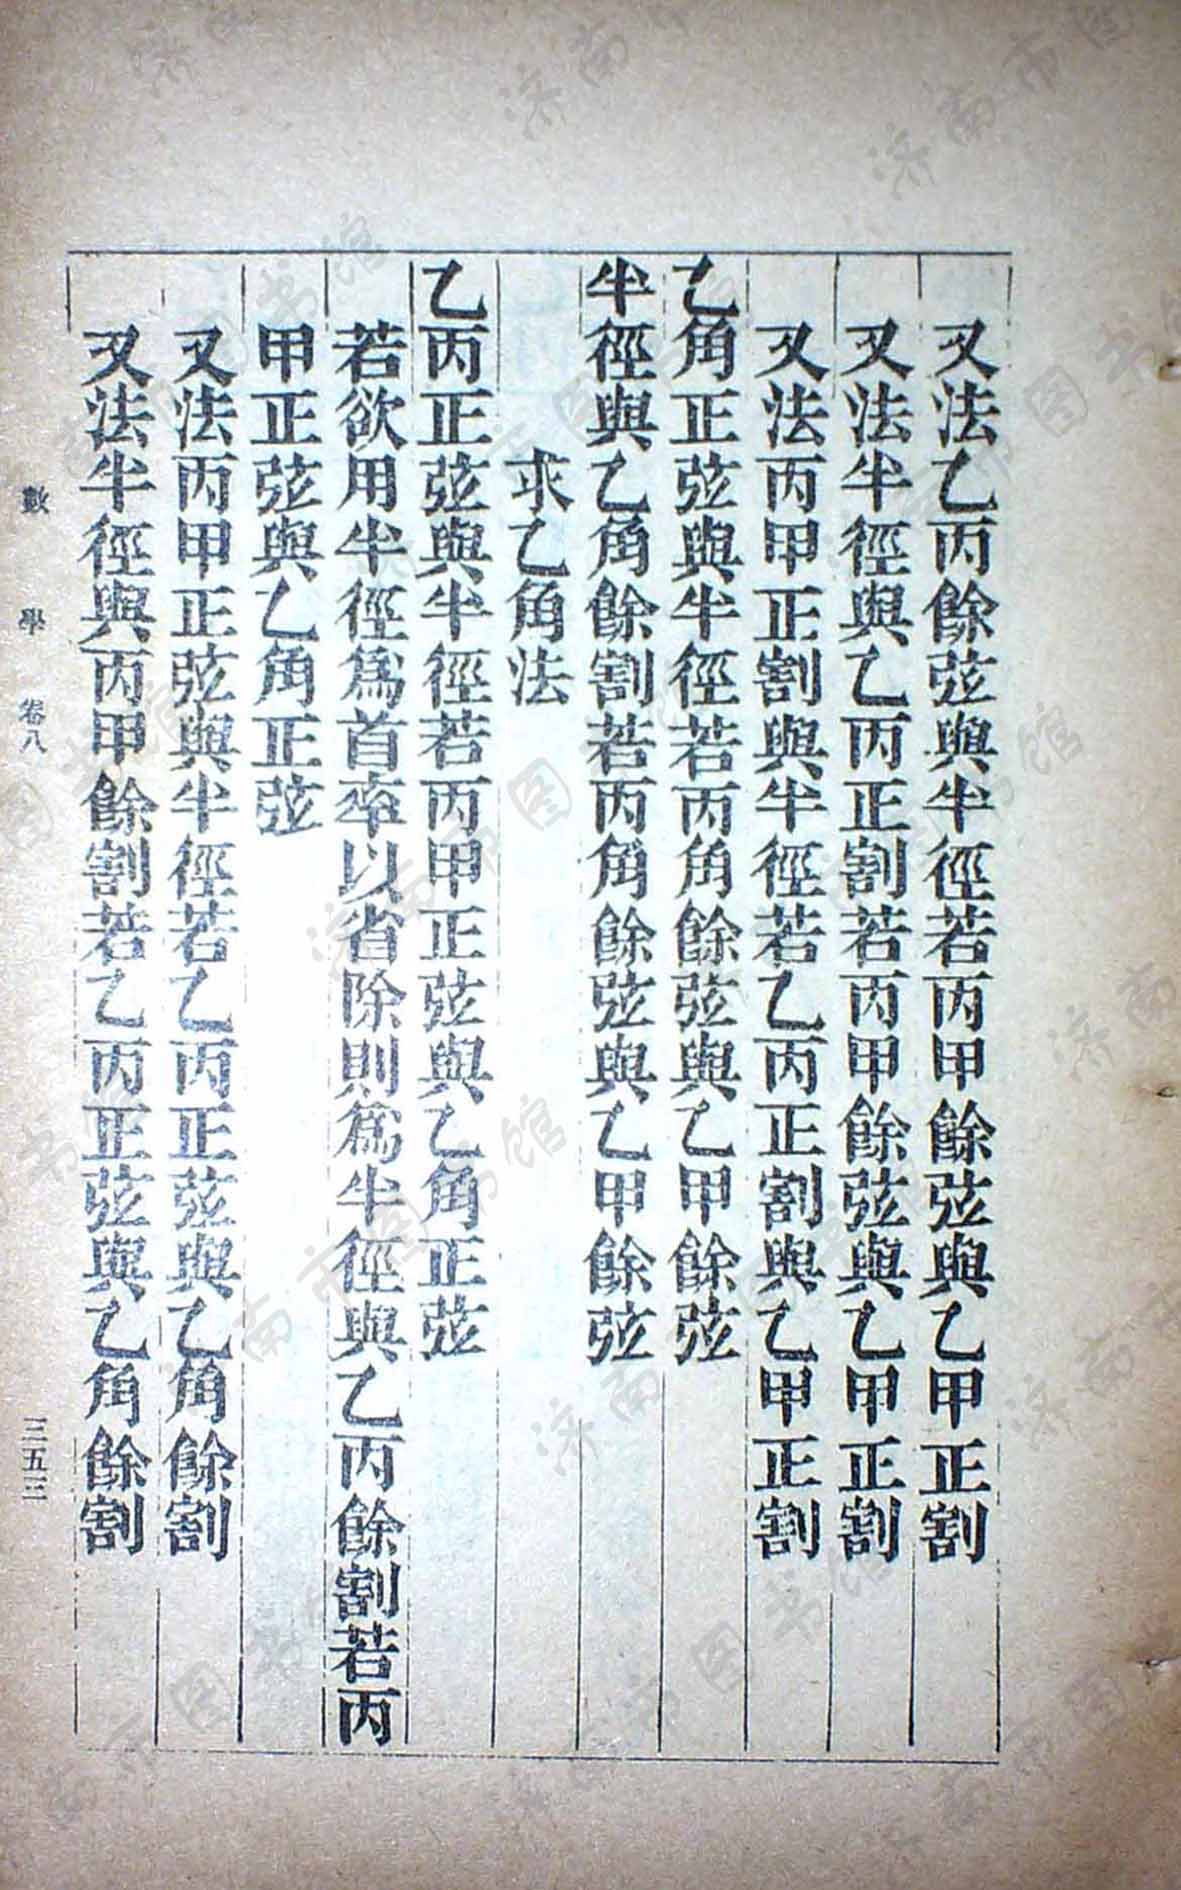 又法乙丙餘弦與半徑若丙甲餘弦與乙甲正割
又法半徑與乙丙正割若丙甲餘弦與乙甲正割
又法丙甲正割與半徑若乙丙正割與乙甲正割
乙角正弦與半徑若丙角餘弦與乙甲餘弦
半徑與乙角餘割若丙角餘弦與乙甲餘弦
求乙角法
乙丙正弦與半徑若丙甲正弦與乙角正弦
若欲用半徑爲首率以省除則爲半徑與乙丙餘割若丙
甲正弦與乙角正弦
又法丙甲正弦與半徑若乙丙正弦與乙角餘割
又法半徑與丙甲餘割若乙丙正弦與乙角餘割
數學 卷八 三五三
济南市图书馆